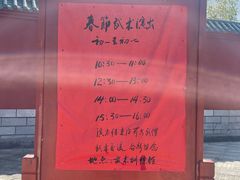 春节武术演出
初一至初八
10:30——11:00
12:30——13:00
14:00——14:30
15:30——16:00
地点：武术训练馆